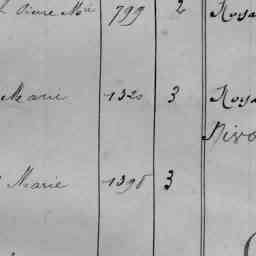 Pierre Mie 799 2 Roya
Marie 1320 3 Roya
Nivo
Marie 1398 3